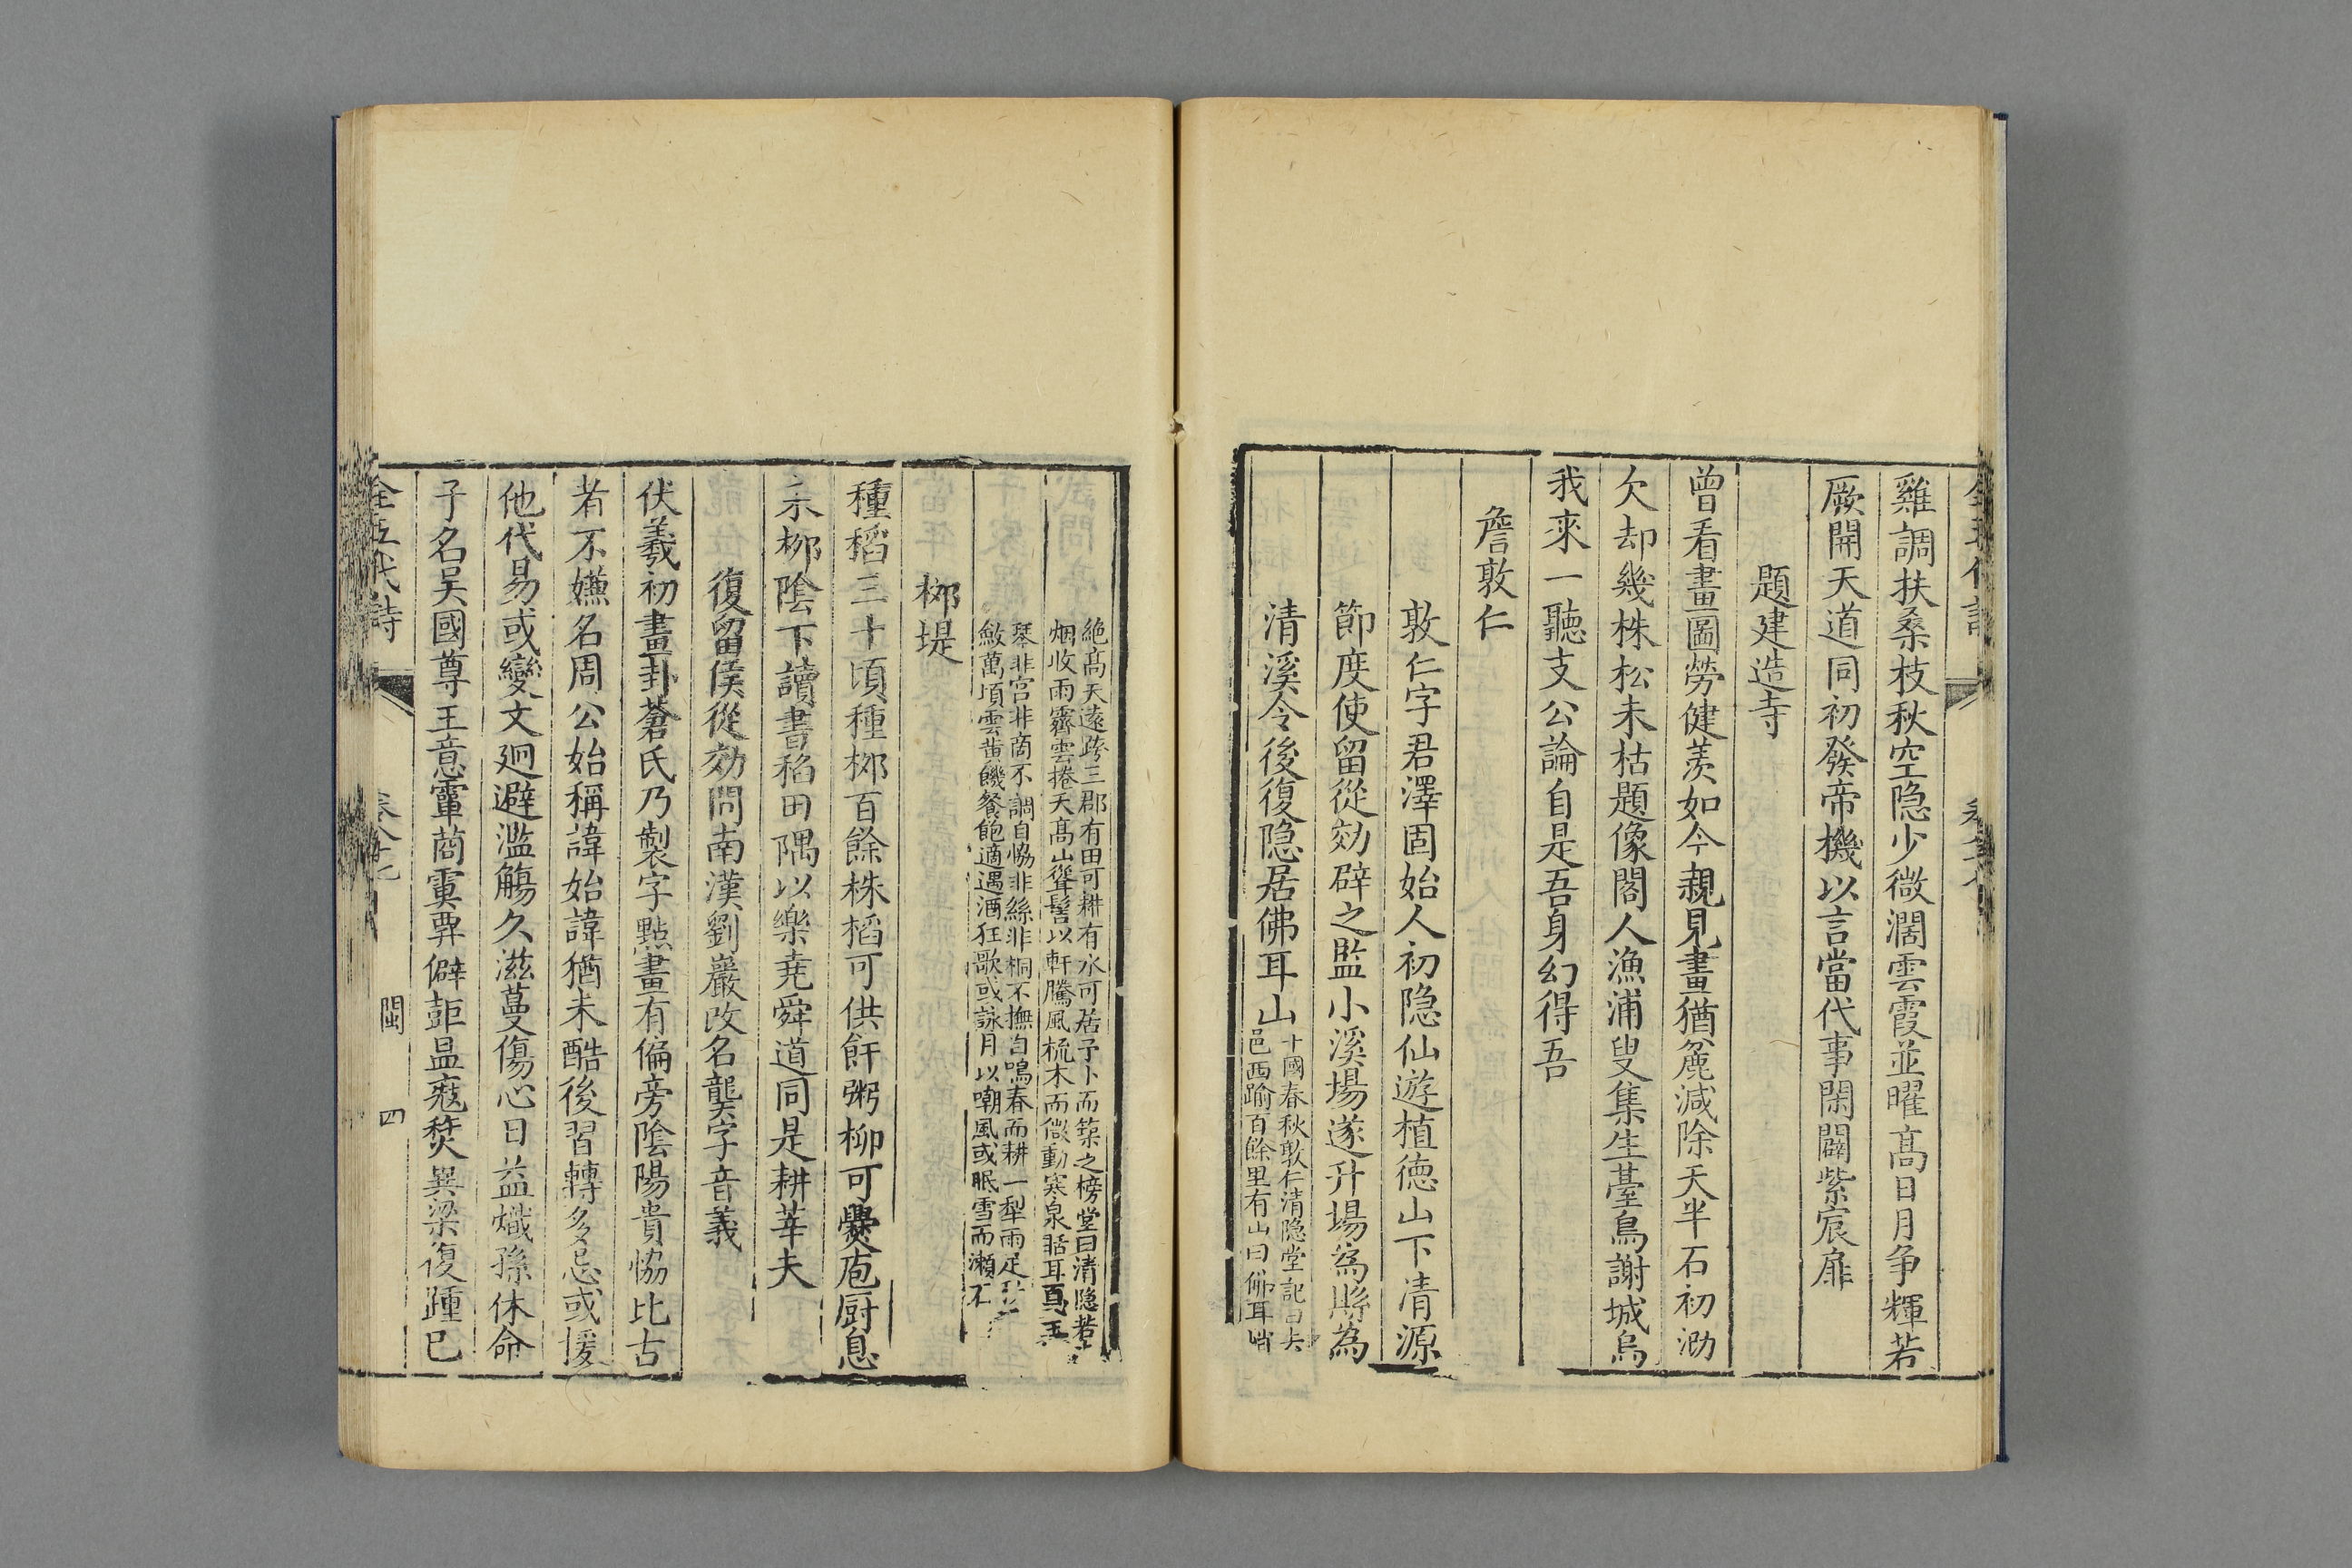 雞調扶桑枝秋空隐少微濶雲霞並曜髙日月争輝若
厥開天道同初發帝機以言當代事閑闢紫宸扉
題建造寺
曾看畫圖勞健羡如今親見畫猶麄减除天半石初泐
欠却幾株松未枯題像閣人漁浦叟集生臺鳥謝城烏
我來一聽支公論自是吾身幻得吾
詹敦仁
敦仁字君澤固始人初隐仙遊植德山下清源
節度使留從効辟之監小溪場遂升場為縣為
清溪令後復隐居佛耳山
十國春秋敦仁清隐堂記曰去
邑西踰百餘里有山曰佛耳峭
絶髙天遠跨三郡有田可耕有水可居予卜而築之榜堂曰清隐若
烟收雨霽雲捲天髙山聳髻以軒騰風梳木而微動寒泉聒耳
琴非宫非商不調自恊非絲非桐不撫自鳴春而耕一犁雨足
斂萬頃雲黄饑餐飽適遇酒狂歌或詠月以嘲風或眠雪而瀬石
桞堤
種稻三十頃種桞百餘株稻可供飦粥柳可爨庖厨息
耒桞陰下讀書稻田隅以樂尭舜道同是耕莘夫
復留侯從効問南漢劉巖改名龑字音義
伏羲初畫卦蒼氏乃製字點畫有偏旁隂陽貴恊比古
者不嫌名周公始稱諱始諱猶未酷後習轉多忌或援
他代易或變文廻避濫觴久滋蔓傷心日益熾孫休命
子名吴國尊王意𩅦𦯶𩃙𢍁僻䶳昷𡨥㷼異梁復踵已
全五代詩
閩
四